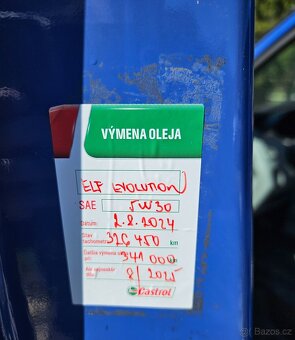 VÝMENA OLEJA
ELF EVOLUTION
SAE 5W30
Dátum: 2.8.2024
Stav tachometra 326 450 km
Ďalšia výmena pri: 341 000 km
Ale najneskôr dňa: 8/2025
Castrol
bazos.cz